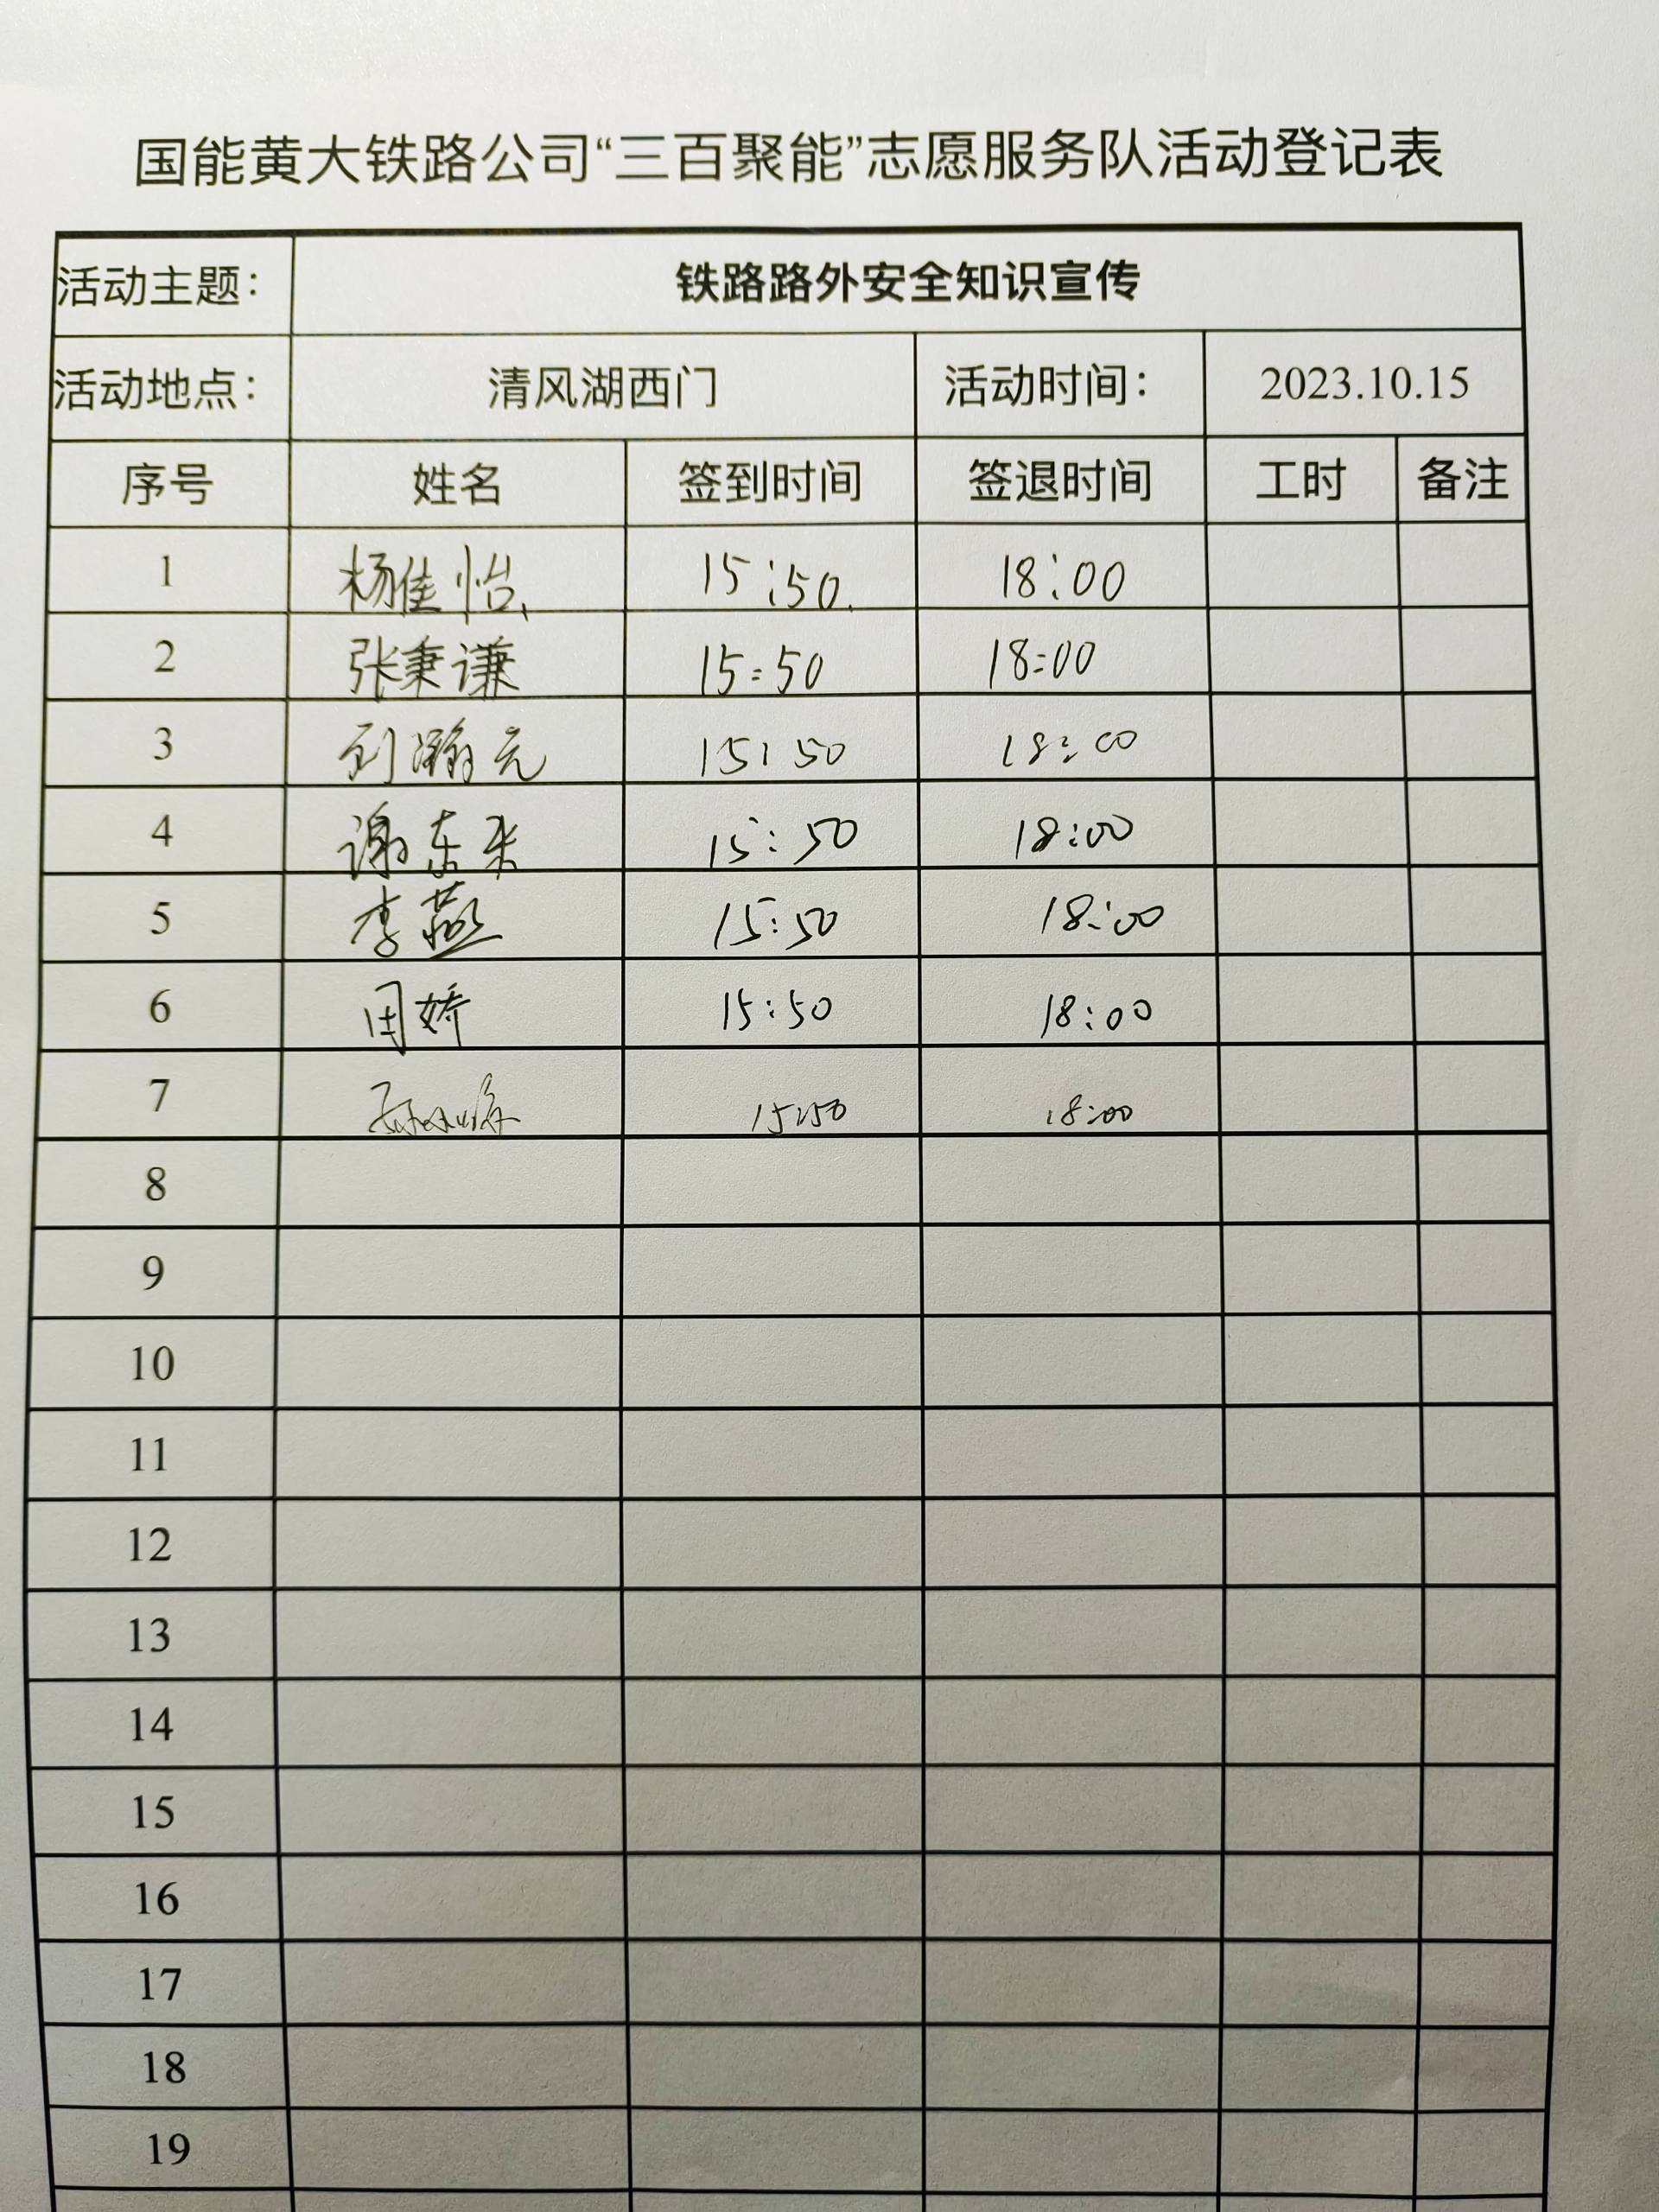 国能黄大铁路公司“三百聚能”志愿服务队活动登记表
活动主题： 铁路路外安全知识宣传
活动地点： 清风湖西门 活动时间： 2023.10.15
序号 姓名 签到时间 签退时间 工时 备注
1 杨佳怡 15:50 18:00
2 张秉谦 15:50 18:00
3 刘瀚元 15:50 18:00
4 谢东来 15:50 18:00
5 李燕 15:50 18:00
6 周娇 15:50 18:00
7 15:50 18:00
8
9
10
11
12
13
14
15
16
17
18
19